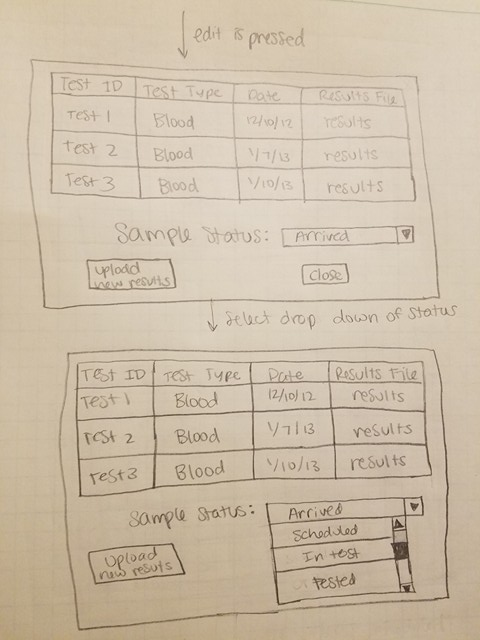 edit is pressed
Test ID Test Type Date Results File
Test 1 Blood 12/10/12 results
Test 2 Blood 1/7/13 results
Test 3 Blood 1/10/13 results
Sample Status: Arrived
upload
new results
Close
Select drop down of status
Test ID Test Type Date Results File
Test 1 Blood 12/10/12 results
Test 2 Blood 1/7/13 results
Test 3 Blood 1/10/13 results
Sample Status: Arrived
Scheduled
In test
Tested
Upload
new resuts